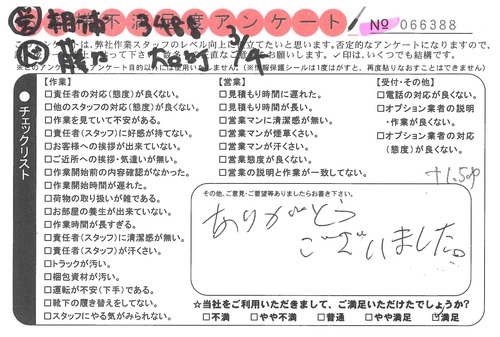 不満足度アンケート No 066388
営 相
+1.5P
このアンケートは、弊社作業スタッフのレベル向上に役立てたいと思います。否定的なアンケートになりますので、
直なご意見をお願いします。✓印は、いくつでも結構です。
チェックリスト
【作業】
□責任者の対応(態度)が良くない。
□他のスタッフの対応(態度)が良くない。
□作業を見ていて不安がある。
□責任者(スタッフ)に好感が持てない。
□お客様への挨拶が出来ていない。
□ご近所への挨拶・気遣いが無い。
□作業開始前の内容確認がなかった。
□作業開始時間が遅れた。
□荷物の取り扱いが雑である。
□お部屋の養生が出来ていない。
□作業時間が長すぎる。
□責任者(スタッフ)に清潔感が無い。
□責任者(スタッフ)が汗くさい。
□トラックが汚い。
□梱包資材が汚い。
□運転が不安(下手)である。
□靴下の履き替えをしてない。
□スタッフにやる気がみられない。
【営業】
□見積もり時間に遅れた。
□見積もり時間が長い。
□営業マンに清潔感が無い。
□営業マンが煙草くさい。
□営業マンが汗くさい。
□営業態度が良くない。
□営業の説明と作業が一致してない。
【受付・その他】
□電話の対応が良くない。
□オプション業者の説明
・作業が良くない。
□オプション業者の対応
(態度)が良くない。
その他、ご意見・ご要望等ありましたらお書き下さい。
ありがとう
ございました。
☆当社をご利用いただきまして、ご満足いただけたでしょうか?
□不満 □やや不満 □普通 □やや満足 ☑満足